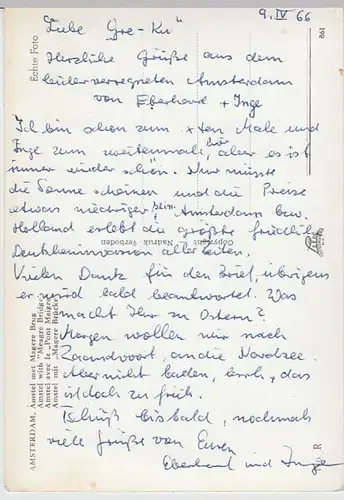 9. IV 66
"Liebe Gre-Ku"
Herzliche Grüße aus dem
leider verregneten Amsterdam
von Eberhard + Inge
Ich bin schon zum xten Male und
Inge zum zweitenmal hier, aber es ist
immer wieder schön. Nur müsste
die Sonne scheinen und die Preise
etwas niedriger sein. Amsterdam bzw.
Holland erlebt die größte friedliche
Deutscheninvasion aller Zeiten.
Vielen Dank für den Brief, übrigens
er wird bald beantwortet. Was
macht Ihr zu Ostern?
Morgen wollen wir nach
Zaandvoort, an die Nordsee.
Aber nicht baden, brrh, das
ist doch zu früh.
Tschüß bis bald, nochmals
viele Grüße von Euren
Eberhard und Inge
Echte Foto
861
Copyright
Nadruk Verboden
AMSTERDAM, Amstel met Magere Brug
Amstel with "Meagre Bridge"
Amstel avec le "Pont Maigre"
Amstel mit "Magere Brücke"
R